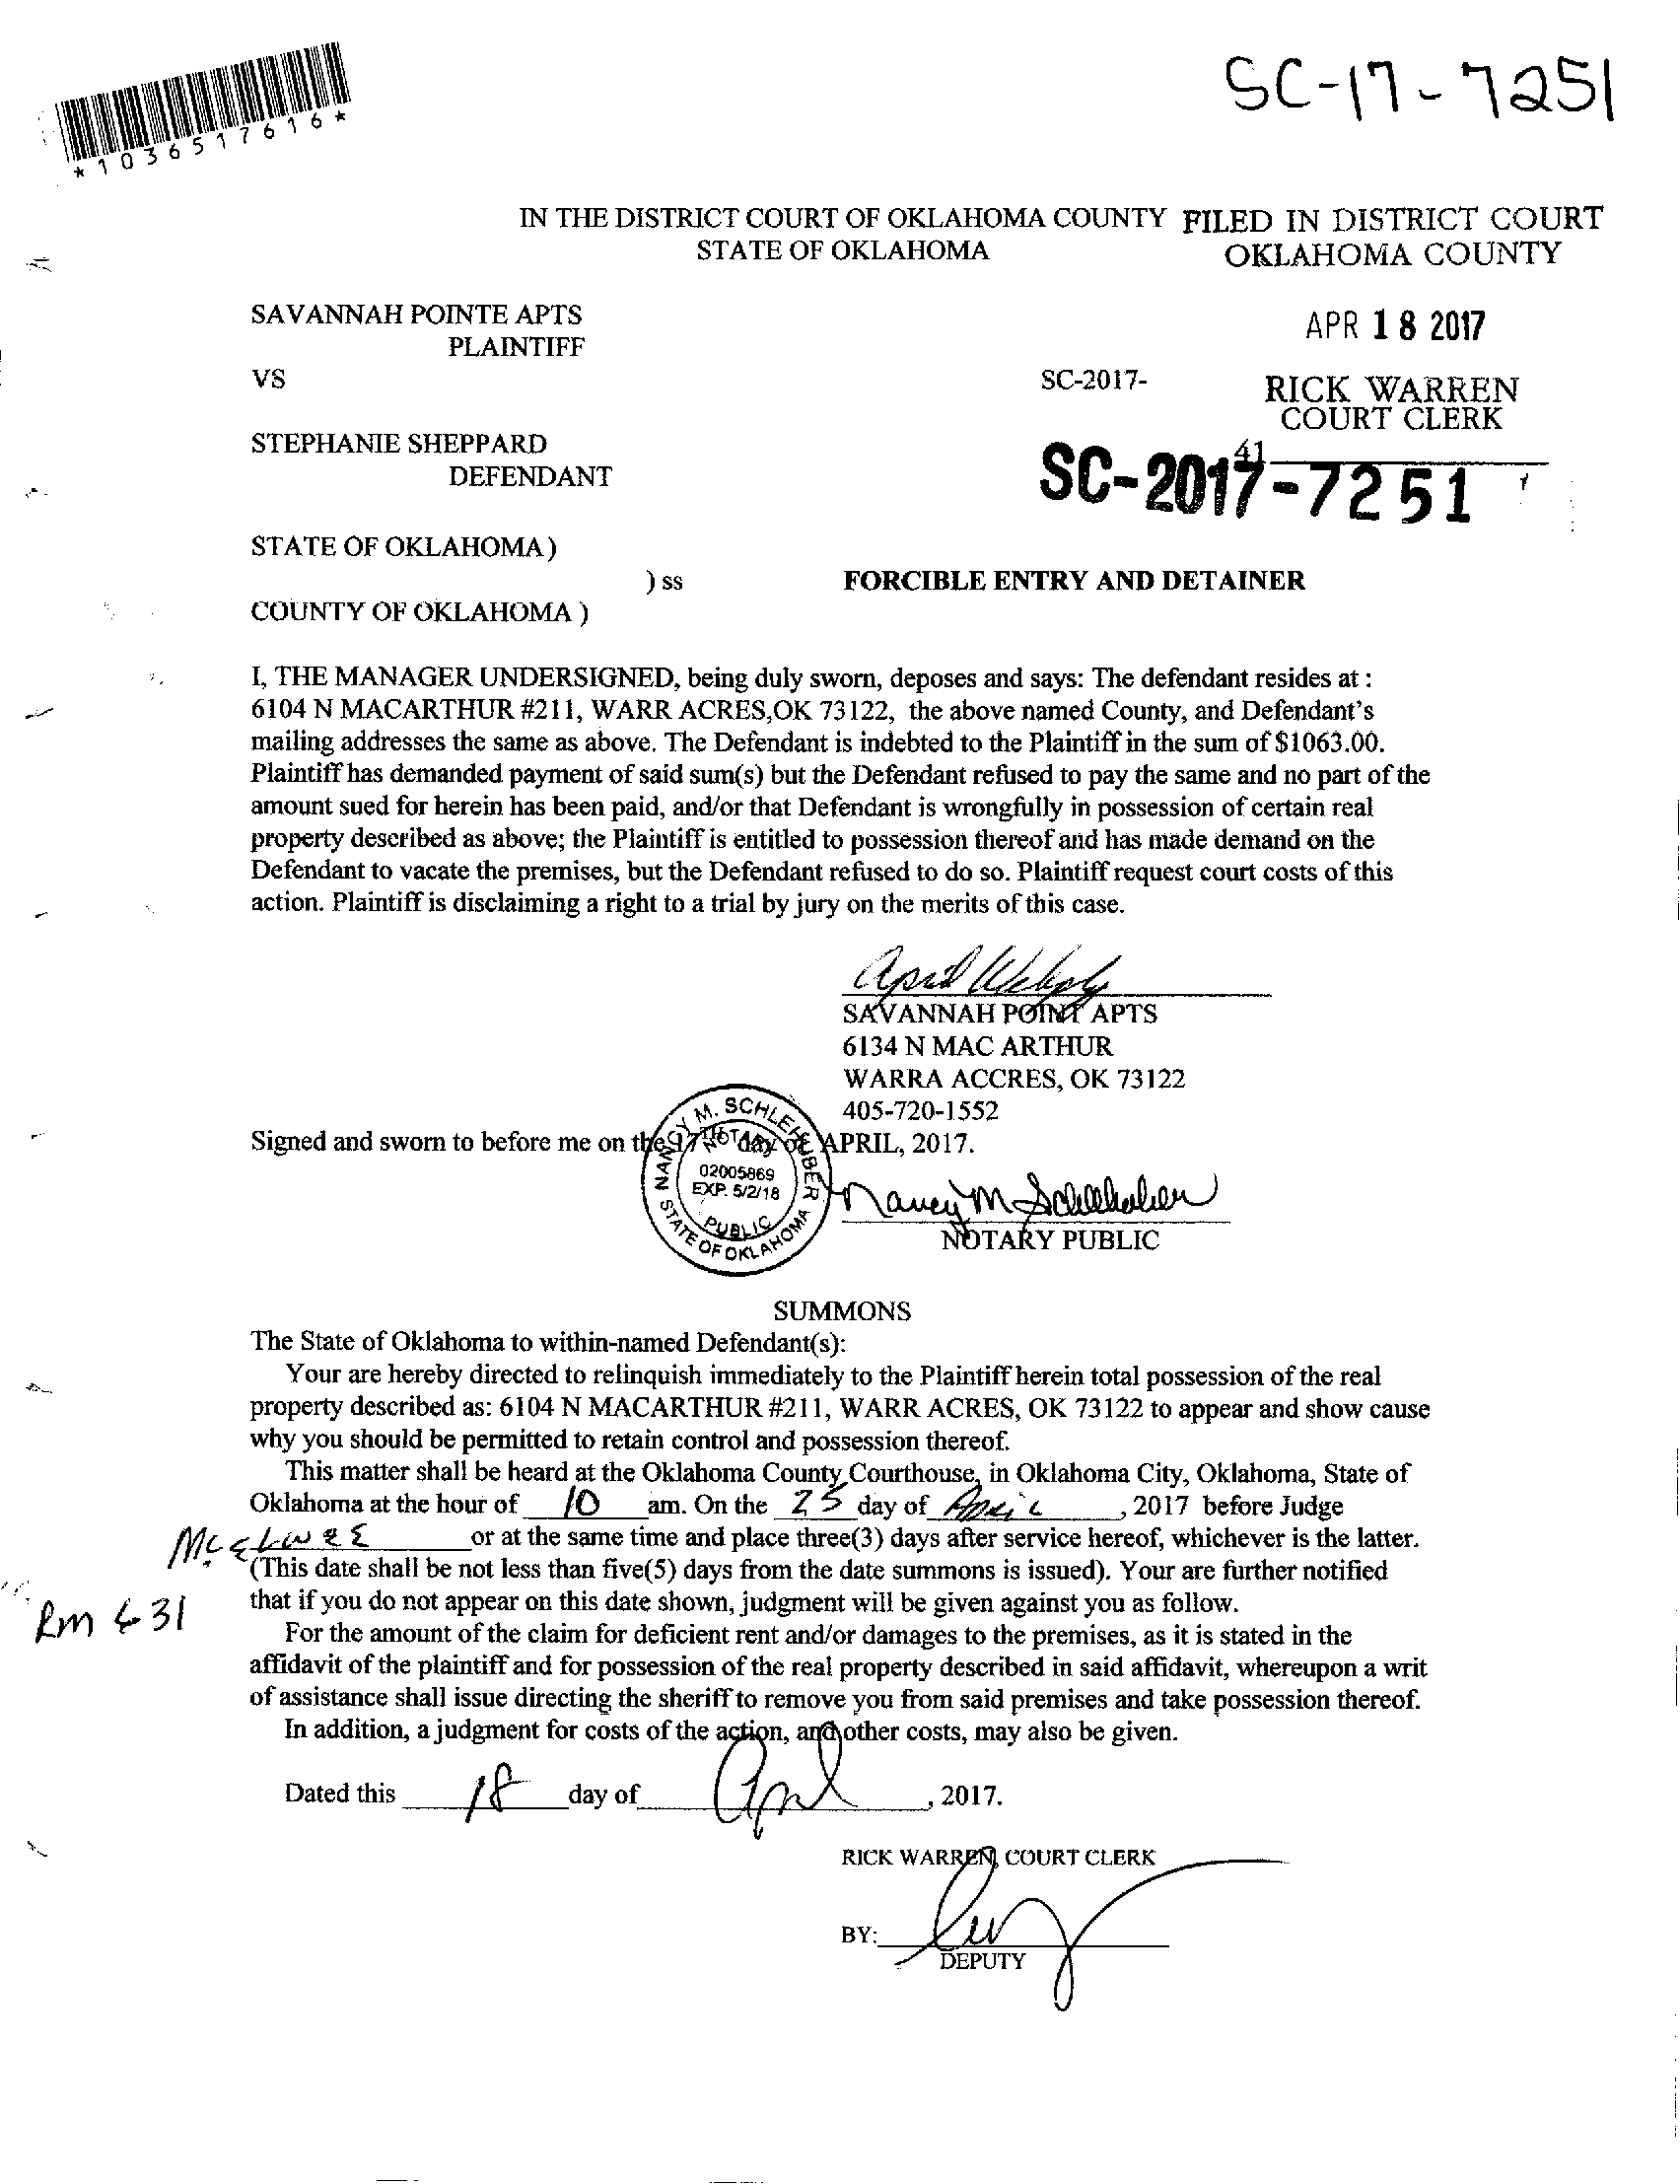 SC-17-7251
*1036517616*
IN THE DISTRICT COURT OF OKLAHOMA COUNTY FILED IN DISTRICT COURT
STATE OF OKLAHOMA OKLAHOMA COUNTY
SAVANNAH POINTE APTS
PLAINTIFF
APR 18 2017
VS
SC-2017-
RICK WARREN
COURT CLERK
STEPHANIE SHEPPARD
DEFENDANT
41
SC-2017-7251
STATE OF OKLAHOMA)
) ss FORCIBLE ENTRY AND DETAINER
COUNTY OF OKLAHOMA )
I, THE MANAGER UNDERSIGNED, being duly sworn, deposes and says: The defendant resides at :
6104 N MACARTHUR #211, WARR ACRES,OK 73122, the above named County, and Defendant's
mailing addresses the same as above. The Defendant is indebted to the Plaintiff in the sum of $1063.00.
Plaintiff has demanded payment of said sum(s) but the Defendant refused to pay the same and no part of the
amount sued for herein has been paid, and/or that Defendant is wrongfully in possession of certain real
property described as above; the Plaintiff is entitled to possession thereof and has made demand on the
Defendant to vacate the premises, but the Defendant refused to do so. Plaintiff request court costs of this
action. Plaintiff is disclaiming a right to a trial by jury on the merits of this case.
April
SAVANNAH POINT APTS
6134 N MAC ARTHUR
WARRA ACCRES, OK 73122
405-720-1552
Signed and sworn to before me on the 17TH day of APRIL, 2017.
NANCY M. SCHLEHUBER
NOTARY
02005869
EXP. 5/2/18
PUBLIC
STATE OF OKLAHOMA
Nancy M Schlehuber
NOTARY PUBLIC
SUMMONS
The State of Oklahoma to within-named Defendant(s):
Your are hereby directed to relinquish immediately to the Plaintiff herein total possession of the real
property described as: 6104 N MACARTHUR #211, WARR ACRES, OK 73122 to appear and show cause
why you should be permitted to retain control and possession thereof.
This matter shall be heard at the Oklahoma County Courthouse, in Oklahoma City, Oklahoma, State of
Oklahoma at the hour of 10 am. On the 25 day of April, 2017 before Judge
McElwee or at the same time and place three(3) days after service hereof, whichever is the latter.
(This date shall be not less than five(5) days from the date summons is issued). Your are further notified
that if you do not appear on this date shown, judgment will be given against you as follow.
Rm 431
For the amount of the claim for deficient rent and/or damages to the premises, as it is stated in the
affidavit of the plaintiff and for possession of the real property described in said affidavit, whereupon a writ
of assistance shall issue directing the sheriff to remove you from said premises and take possession thereof.
In addition, a judgment for costs of the action, and other costs, may also be given.
Dated this 18 day of April, 2017.
RICK WARREN, COURT CLERK
BY:
DEPUTY